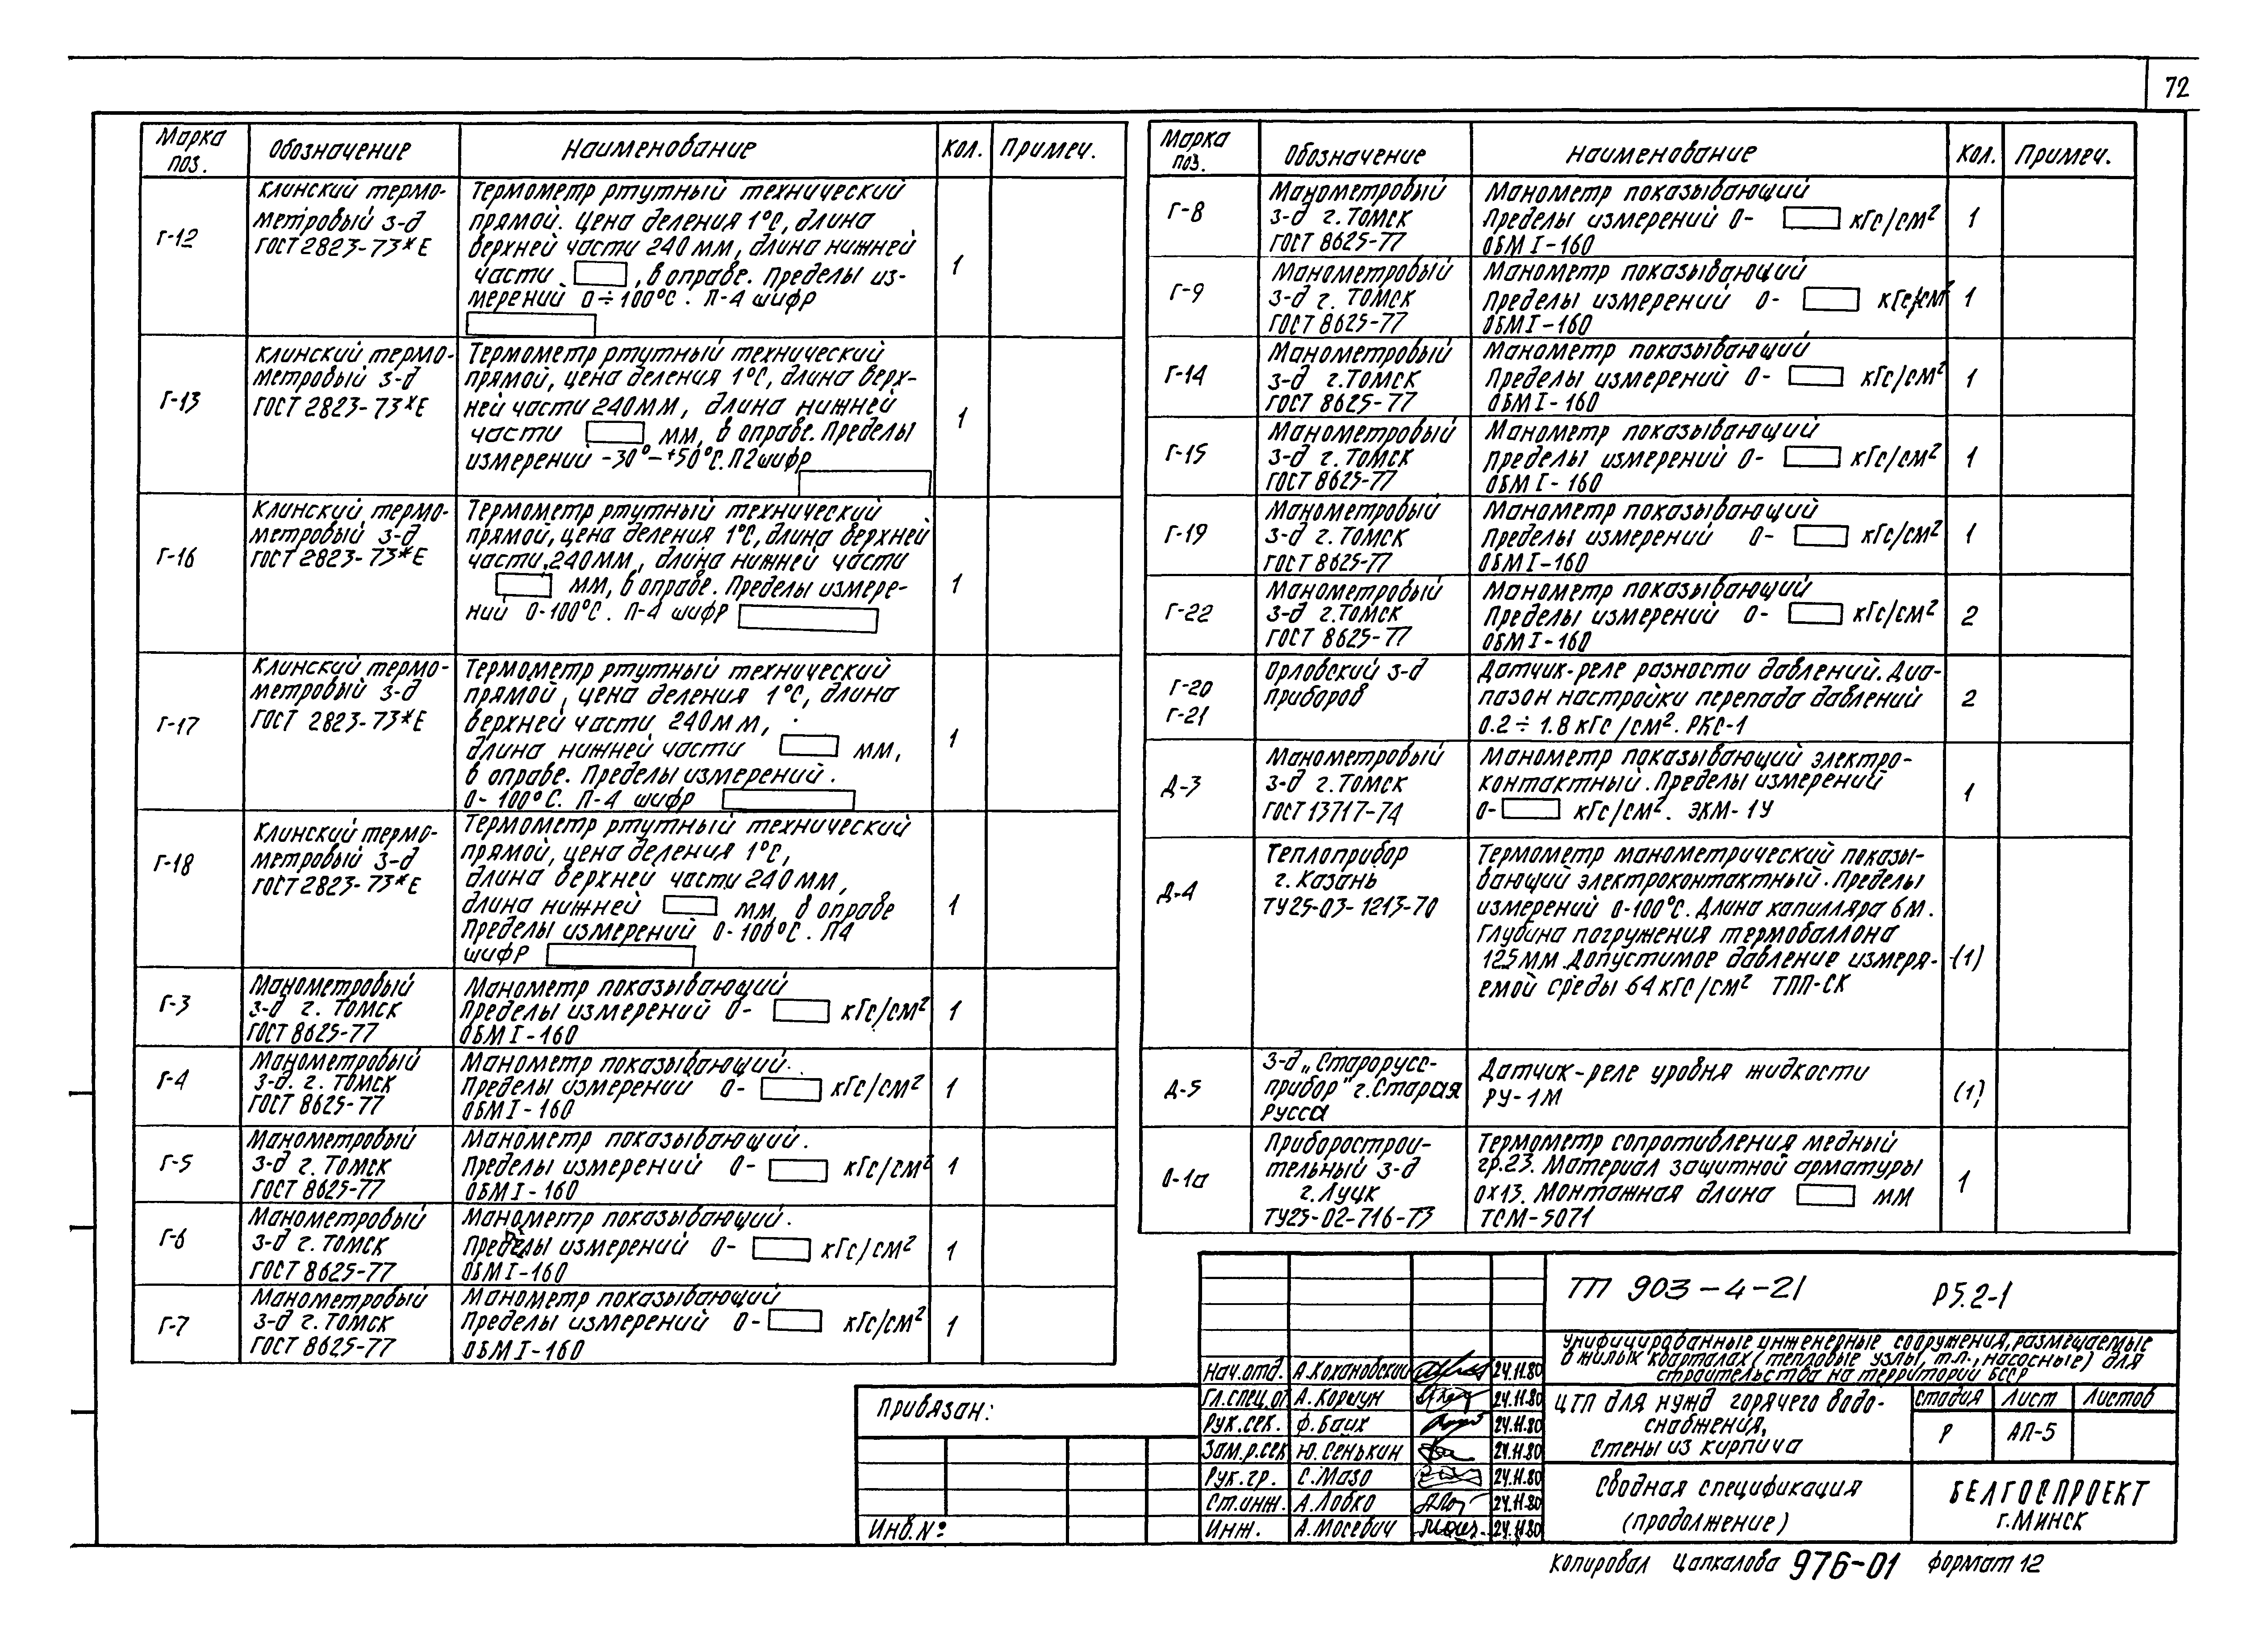 72
Марка поз. Обозначение Наименование Кол. Примеч.
Г-12
Клинский термо-
метровый з-д
ГОСТ 2823-73*Е
Термометр ртутный технический
прямой. Цена деления 1°С, длина
верхней части 240 мм, длина нижней
части , в оправе. Пределы из-
мерений 0÷100°С. П-4 шифр
1
Г-13
Клинский термо-
метровый з-д
ГОСТ 2823-73*Е
Термометр ртутный технический
прямой, цена деления 1°С, длина верх-
ней части 240мм, длина нижней
части мм, в оправе. Пределы
измерений -30°-+50°С. П2 шифр
1
Г-16
Клинский термо-
метровый з-д
ГОСТ 2823-73*Е
Термометр ртутный технический
прямой, цена деления 1°С, длина верхней
части 240мм, длина нижней части
мм, в оправе. Пределы измере-
ний 0-100°С. П-4 шифр
1
Г-17
Клинский термо-
метровый з-д
ГОСТ 2823-73*Е
Термометр ртутный технический
прямой, цена деления 1°С, длина
верхней части 240мм,
длина нижней части мм,
в оправе. Пределы измерений.
0-100°С. П-4 шифр
1
Г-18
Клинский термо-
метровый з-д
ГОСТ 2823-73*Е
Термометр ртутный технический
прямой, цена деления 1°С,
длина верхней части 240мм,
длина нижней мм, в оправе
Пределы измерений 0-100°С. П4
шифр
1
Г-3
Манометровый
з-д г. Томск
ГОСТ 8625-77
Манометр показывающий
Пределы измерений 0- кгс/см²
ОБМ I-160
1
Г-4
Манометровый
з-д. г. Томск
ГОСТ 8625-77
Манометр показывающий.
Пределы измерений 0- кгс/см²
ОБМ I-160
1
Г-5
Манометровый
з-д г. Томск
ГОСТ 8625-77
Манометр показывающий.
Пределы измерений 0- кгс/см²
ОБМ I-160
1
Г-6
Манометровый
з-д г. Томск
ГОСТ 8625-77
Манометр показывающий.
Пределы измерений 0- кгс/см²
ОБМ I-160
1
Г-7
Манометровый
з-д г. Томск
ГОСТ 8625-77
Манометр показывающий
Пределы измерений 0- кгс/см²
ОБМ I-160
1
Марка поз. Обозначение Наименование Кол. Примеч.
Г-8
Манометровый
з-д г. Томск
ГОСТ 8625-77
Манометр показывающий
Пределы измерений 0- кгс/см²
ОБМ I-160
1
Г-9
Манометровый
з-д г. Томск
ГОСТ 8625-77
Манометр показывающий
Пределы измерений 0- кгс/см²
ОБМ I-160
1
Г-14
Манометровый
з-д г. Томск
ГОСТ 8625-77
Манометр показывающий
Пределы измерений 0- кгс/см²
ОБМ I-160
1
Г-15
Манометровый
з-д г. Томск
ГОСТ 8625-77
Манометр показывающий
Пределы измерений 0- кгс/см²
ОБМ I-160
1
Г-19
Манометровый
з-д г. Томск
ГОСТ 8625-77
Манометр показывающий
Пределы измерений 0- кгс/см²
ОБМ I-160
1
Г-22
Манометровый
з-д г. Томск
ГОСТ 8625-77
Манометр показывающий
Пределы измерений 0- кгс/см²
ОБМ I-160
2
Г-20
Г-21
Орловский з-д
приборов
Датчик-реле разности давлений. Диа-
пазон настройки перепада давлений
0.2÷1.8 кгс/см². РКС-1
2
Д-3
Манометровый
з-д г. Томск
ГОСТ 13717-74
Манометр показывающий электро-
контактный. Пределы измерений
0- кгс/см². ЭКМ-1У
1
Д-4
Теплоприбор
г. Казань
ТУ25-03-1213-70
Термометр манометрический показы-
вающий электроконтактный. Пределы
измерений 0-100°С. Длина капилляра 6м.
Глубина погружения термобаллона
125мм. Допустимое давление измеря-
емой среды 64 кгс/см² ТПП-СК
(1)
Д-5
З-д „Старорусс-
прибор" г. Старая
Русса
Датчик-реле уровня жидкости
РУ-1М
(1)
О-1а
Приборострои-
тельный з-д
г. Луцк
ТУ25-02-716-73
Термометр сопротивления медный
гр.23. Материал защитной арматуры
0х13. Монтажная длина мм
ТСМ-5071
1
ТП 903-4-21 Р5.2-1
Унифицированные инженерные сооружения, размещаемые
в жилых кварталах (тепловые узлы, т.п., насосные) для
строительства на территории БССР
Нач.отд. А.Кохановский 24.11.80
Гл.спец.от А.Коршун 24.11.80
Рук.сек. Ф.Баих 24.11.80
Зам.р.сек Ю.Сенькин 24.11.80
Рук.гр. С.Мазо 24.11.80
Ст.инж. А.Лобко 24.11.80
Инж. А.Мосевич 24.11.80
ЦТП для нужд горячего водо-
снабжения,
стены из кирпича
Стадия Лист Листов
Р АП-5
Сводная спецификация
(продолжение)
БЕЛГОСПРОЕКТ
г. Минск
Привязан:
Инв.№
Копировал Цапкалова 976-01 Формат 12